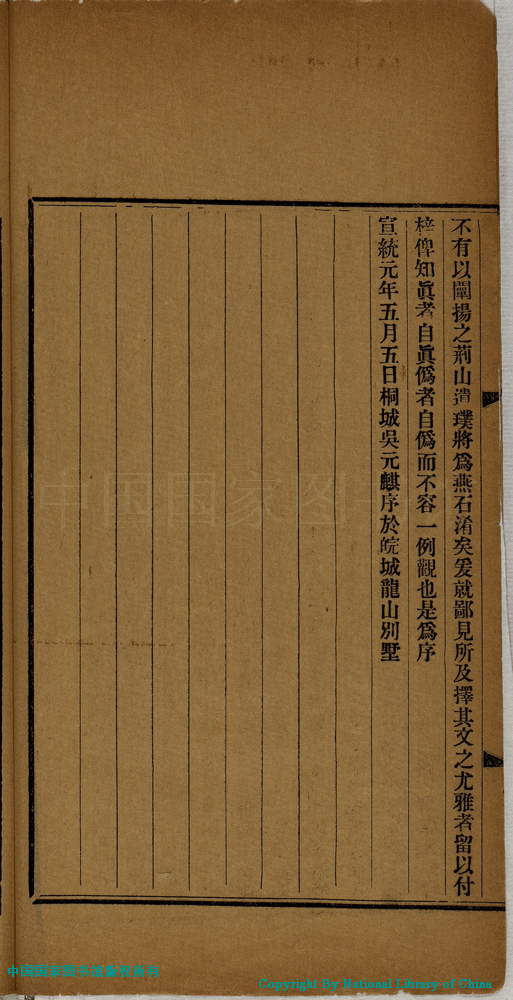 不有以闡揚之荊山遺璞將爲燕石淆矣爰就鄙見所及擇其文之尤雅者留以付
梓俾知眞者自眞僞者自僞而不容一例觀也是爲序
宣統元年五月五日桐城吳元麒序於皖城龍山別墅
中国国家图书馆
中国国家图书馆版权所有
Copyright By National Library of China